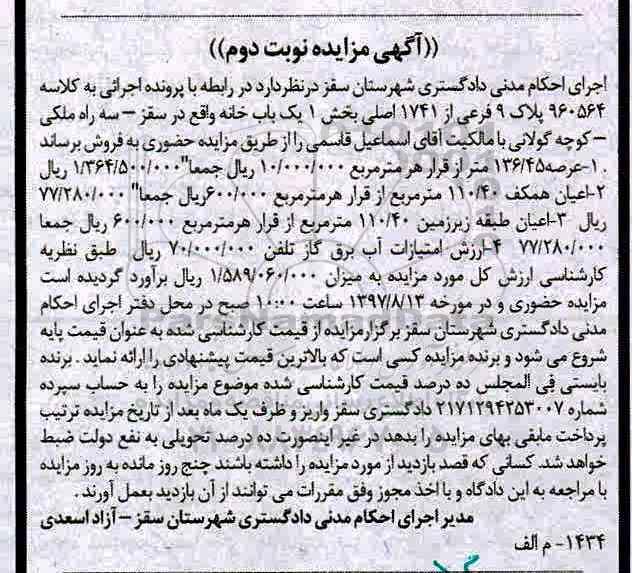 ((آگهی مزایده نوبت دوم))
اجرای احکام مدنی دادگستری شهرستان سقز درنظردارد در رابطه با پرونده اجرائی به کلاسه
۹۶۰۵۶۴ پلاک ۹ فرعی از ۱۷۴۱ اصلی بخش ۱ یک باب خانه واقع در سقز – سه راه ملکی
– کوچه گولانی با مالکیت آقای اسماعیل قاسمی را از طریق مزایده حضوری به فروش برساند
. ۱-عرصه۱۳۶/۴۵ متر از قرار هر مترمربع ۱۰/۰۰۰/۰۰۰ ریال جمعا"۱/۳۶۴/۵۰۰/۰۰۰ ریال
۲-اعیان همکف ۱۱۰/۴۰ مترمربع از قرار هرمترمربع ۶۰۰/۰۰۰ریال جمعا" ۷۷/۲۸۰/۰۰۰
ریال ۳-اعیان طبقه زیرزمین ۱۱۰/۴۰ مترمربع از قرار هرمترمربع ۶۰۰/۰۰۰ ریال جمعا
۷۷/۲۸۰/۰۰۰ ۴-ارزش امتیازات آب برق گاز تلفن ۷۰/۰۰۰/۰۰۰ ریال طبق نظریه
کارشناسی ارزش کل مورد مزایده به میزان ۱/۵۸۹/۰۶۰/۰۰۰ ریال برآورد گردیده است
مزایده حضوری و در مورخه ۱۳۹۷/۸/۱۳ ساعت ۱۰:۰۰ صبح در محل دفتر اجرای احکام
مدنی دادگستری شهرستان سقز برگزارمزایده از قیمت کارشناسی شده به عنوان قیمت پایه
شروع می شود و برنده مزایده کسی است که بالاترین قیمت پیشنهادی را ارائه نماید . برنده
بایستی فی المجلس ده درصد قیمت کارشناسی شده موضوع مزایده را به حساب سپرده
شماره ۲۱۷۱۲۹۴۲۵۳۰۰۷ دادگستری سقز واریز و ظرف یک ماه بعد از تاریخ مزایده ترتیب
پرداخت مابقی بهای مزایده را بدهد در غیر اینصورت ده درصد تحویلی به نفع دولت ضبط
خواهد شد. کسانی که قصد بازدید از مورد مزایده را داشته باشند چنج روز مانده به روز مزایده
با مراجعه به این دادگاه و با اخذ مجوز وفق مقررات می توانند از آن بازدید بعمل آورند .
مدیر اجرای احکام مدنی دادگستری شهرستان سقز – آزاد اسعدی
۱۴۳۴- م الف